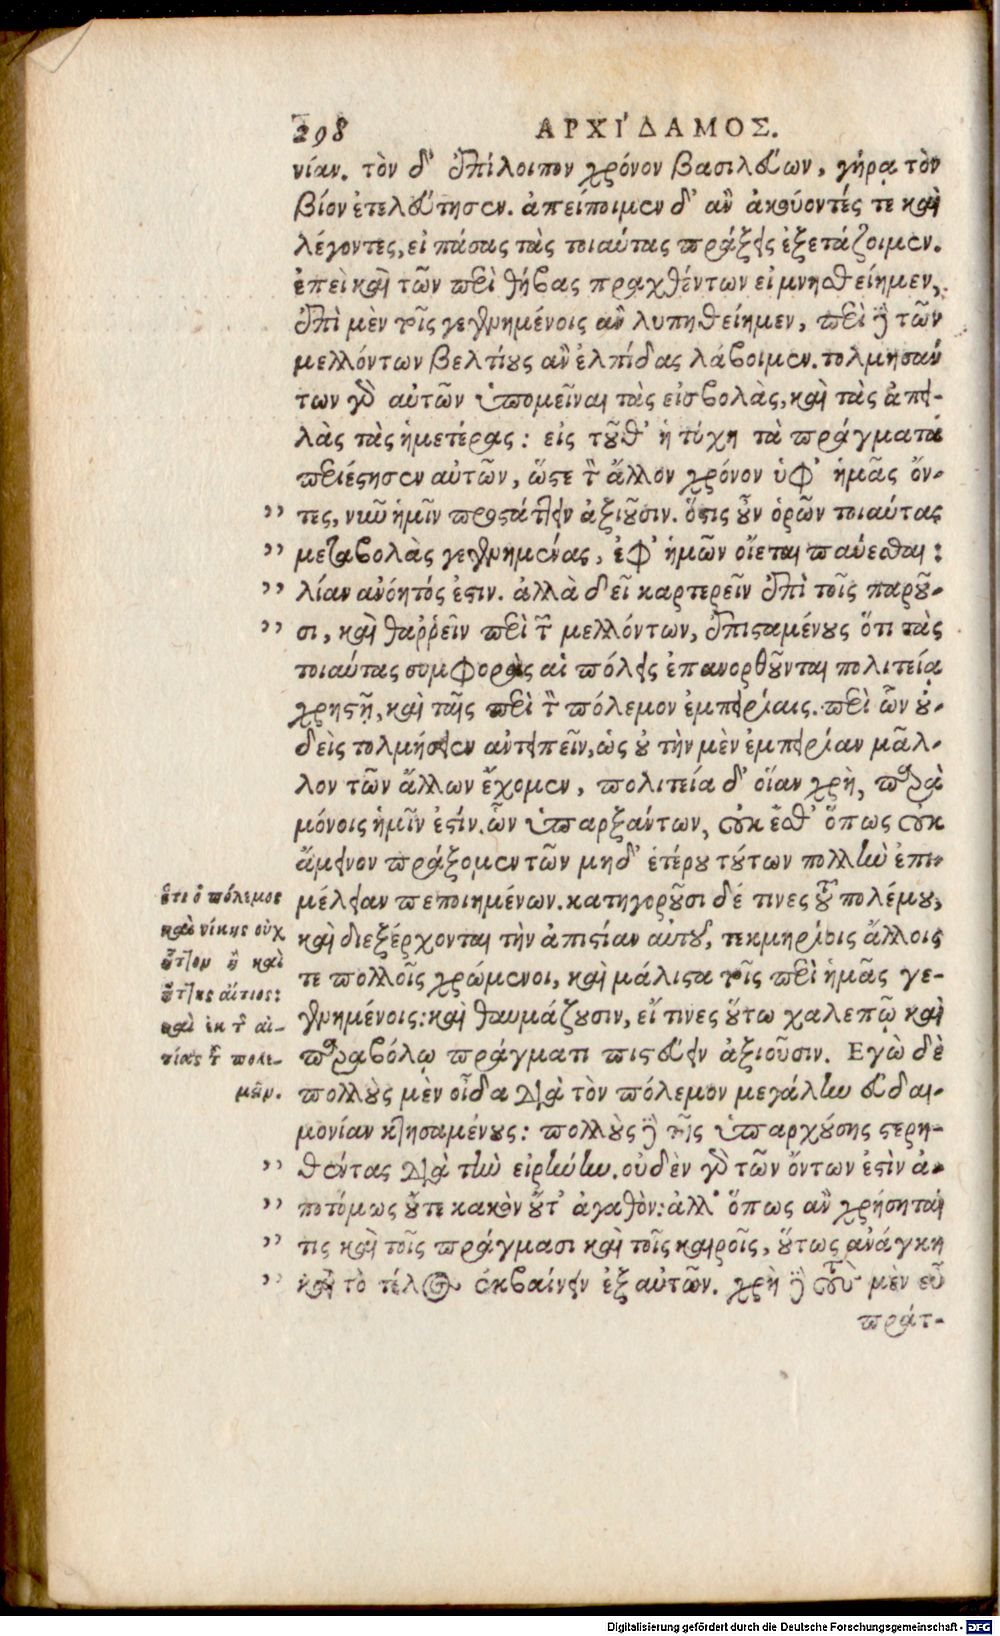 298 ΑΡΧΙΔΑΜΟΣ.
νίαν. τὸν δ' ἐπίλοιπον χρόνον βασιλεύων, γήρᾳ τὸν
βίον ἐτελεύτησεν. ἀπείποιμεν δ' ἂν ἀκούοντές τε καὶ
λέγοντες, εἰ πάσας τὰς τοιαύτας πράξεις ἐξετάζοιμεν.
ἐπεὶ καὶ τῶν περὶ θήβας πραχθέντων εἰ μνησθείημεν,
ἐπὶ μὲν τοῖς γεγενημένοις ἂν λυπηθείημεν, περὶ δὲ τῶν
μελλόντων βελτίους ἂν ἐλπίδας λάβοιμεν. τολμησάν
των γὰρ αὐτῶν ὑπομεῖναι τὰς εἰσβολὰς, καὶ τὰς ἀπει-
λὰς τὰς ἡμετέρας: εἰς τοῦθ' ἡ τύχη τὰ πράγματα
περιέστησεν αὐτῶν, ὥστε τὸν ἄλλον χρόνον ὑφ' ἡμᾶς ὄν-
" τες, νῦν ἡμῖν προστάττειν ἀξιοῦσιν. ὅστις οὖν ὁρῶν τοιαύτας
" μεταβολὰς γεγενημένας, ἐφ' ἡμῶν οἴεται παύεσθαι:
" λίαν ἀνόητός ἐστιν. ἀλλὰ δεῖ καρτερεῖν ἐπὶ τοῖς παροῦ-
" σι, καὶ θαῤῥεῖν περὶ τῶν μελλόντων, ἐπισταμένους ὅτι τὰς
τοιαύτας συμφορὰς αἱ πόλεις ἐπανορθοῦνται πολιτείᾳ
χρηστῇ, καὶ ταῖς περὶ τὸν πόλεμον ἐμπειρίαις. περὶ ὧν οὐ-
δεὶς τολμήσειεν ἀντειπεῖν, ὡς οὐ τὴν μὲν ἐμπειρίαν μᾶλ-
λον τῶν ἄλλων ἔχομεν, πολιτεία δ' οἵαν χρὴ, παρὰ
μόνοις ἡμῖν ἐστίν. ὧν ὑπαρξάντων, οὐκ ἔσθ' ὅπως οὐκ
ἄμεινον πράξομεν τῶν μηδ' ἑτέρου τούτων πολλὴν ἐπι-
μέλειαν πεποιημένων. κατηγοροῦσι δέ τινες τοῦ πολέμου,
καὶ διεξέρχονται τὴν ἀπιστίαν αὐτοῦ, τεκμηρίοις ἄλλοις
τε πολλοῖς χρώμενοι, καὶ μάλιστα τοῖς περὶ ἡμᾶς γε-
γενημένοις: καὶ θαυμάζουσιν, εἴ τινες οὕτω χαλεπῷ καὶ
παραβόλῳ πράγματι πιστεύειν ἀξιοῦσιν. Εγὼ δὲ
πολλοὺς μὲν οἶδα διὰ τὸν πόλεμον μεγάλην εὐδαι-
μονίαν κτησαμένους: πολλοὺς δὲ τῆς ὑπαρχούσης στερη-
" θέντας διὰ τὴν εἰρήνην. οὐδὲν γὰρ τῶν ὄντων ἐστὶν ἀ-
" ποτόμως οὔτε κακὸν οὔτ' ἀγαθὸν: ἀλλ' ὅπως ἂν χρήσηται
" τις καὶ τοῖς πράγμασι καὶ τοῖς καιροῖς, οὕτως ἀνάγκη
" καὶ τὸ τέλος ἐκβαίνειν ἐξ αὐτῶν. χρὴ δὲ τοὺς μὲν εὖ
πράτ-
ὅτι ὁ πόλεμος
καὶ νίκης οὐχ
ἧττον ἢ καὶ
ἥττης αἴτιος:
καὶ ἐκ τῆς αἰ-
τίας τοῦ πολε-
μεῖν.
Digitalisierung gefördert durch die Deutsche Forschungsgemeinschaft - DFG